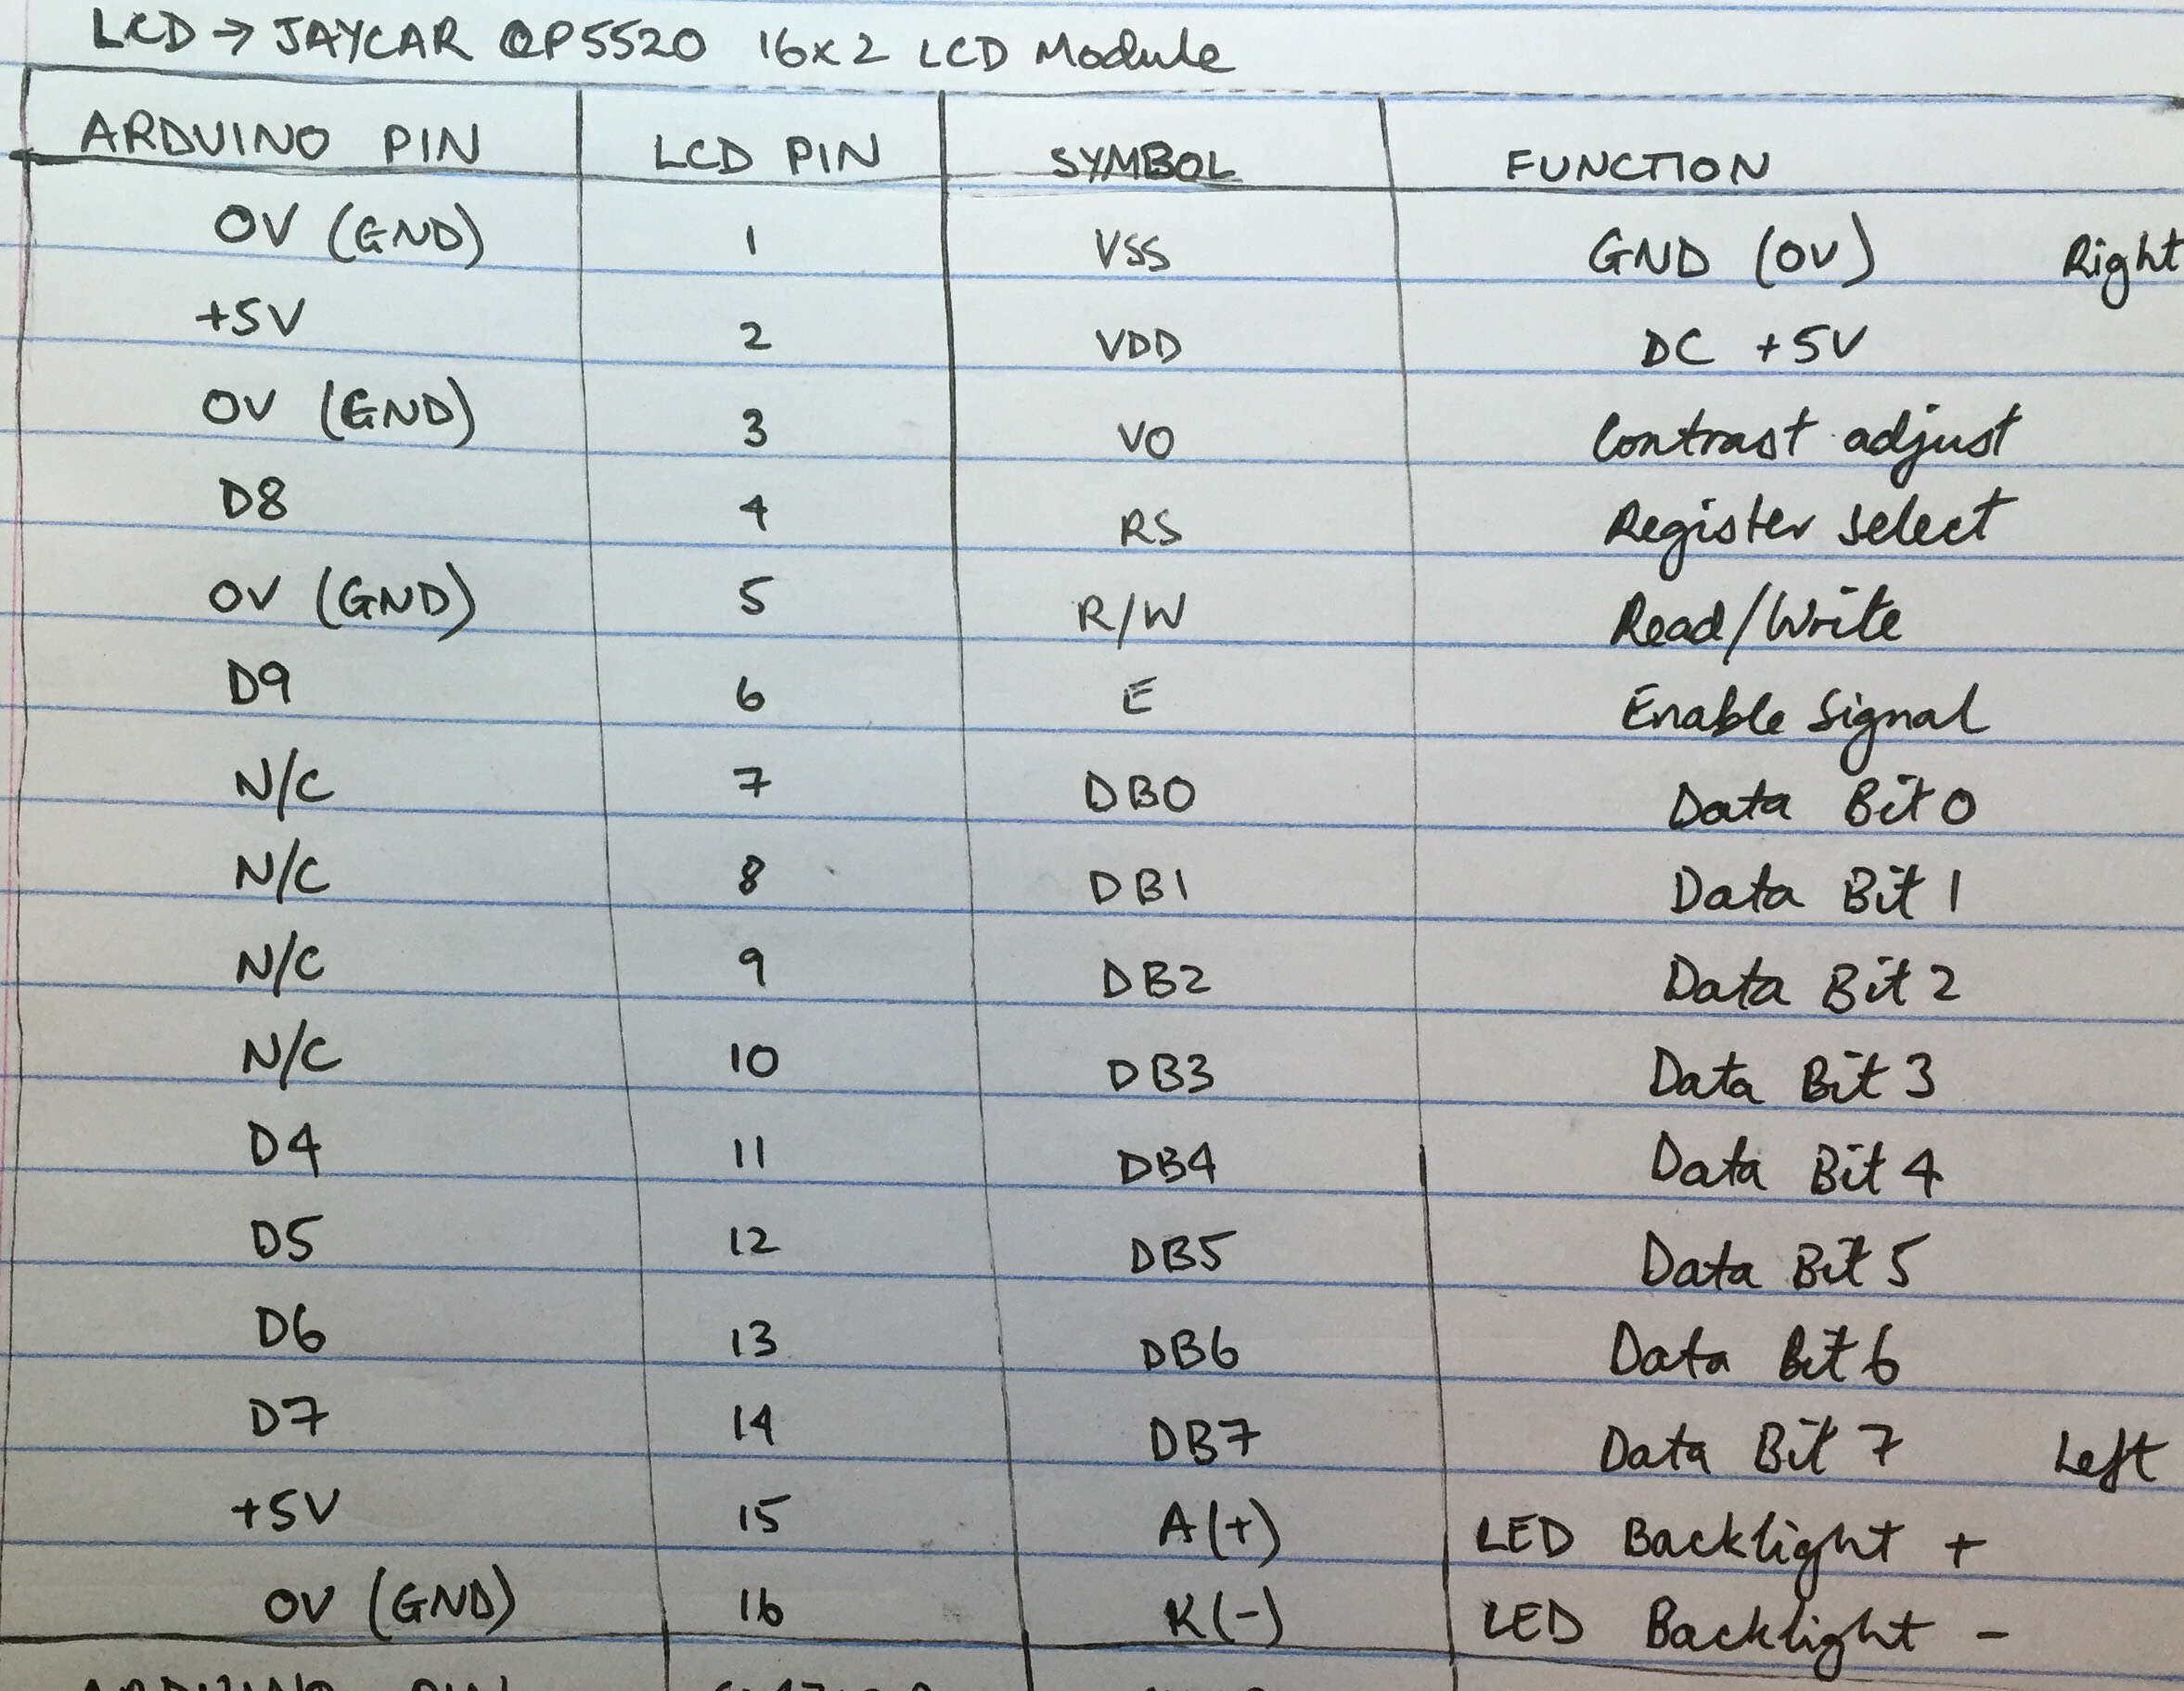 LCD → JAYCAR QP5520 16x2 LCD Module
ARDUINO PIN LCD PIN SYMBOL FUNCTION
0V (GND) 1 VSS GND (0V) Right
+5V 2 VDD DC +5V
0V (GND) 3 VO Contrast adjust
D8 4 RS Register select
0V (GND) 5 R/W Read/Write
D9 6 E Enable Signal
N/C 7 DB0 Data Bit 0
N/C 8 DB1 Data Bit 1
N/C 9 DB2 Data Bit 2
N/C 10 DB3 Data Bit 3
D4 11 DB4 Data Bit 4
D5 12 DB5 Data Bit 5
D6 13 DB6 Data Bit 6
D7 14 DB7 Data Bit 7 Left
+5V 15 A(+) LED Backlight +
0V (GND) 16 K(-) LED Backlight -
ARDUINO PIN